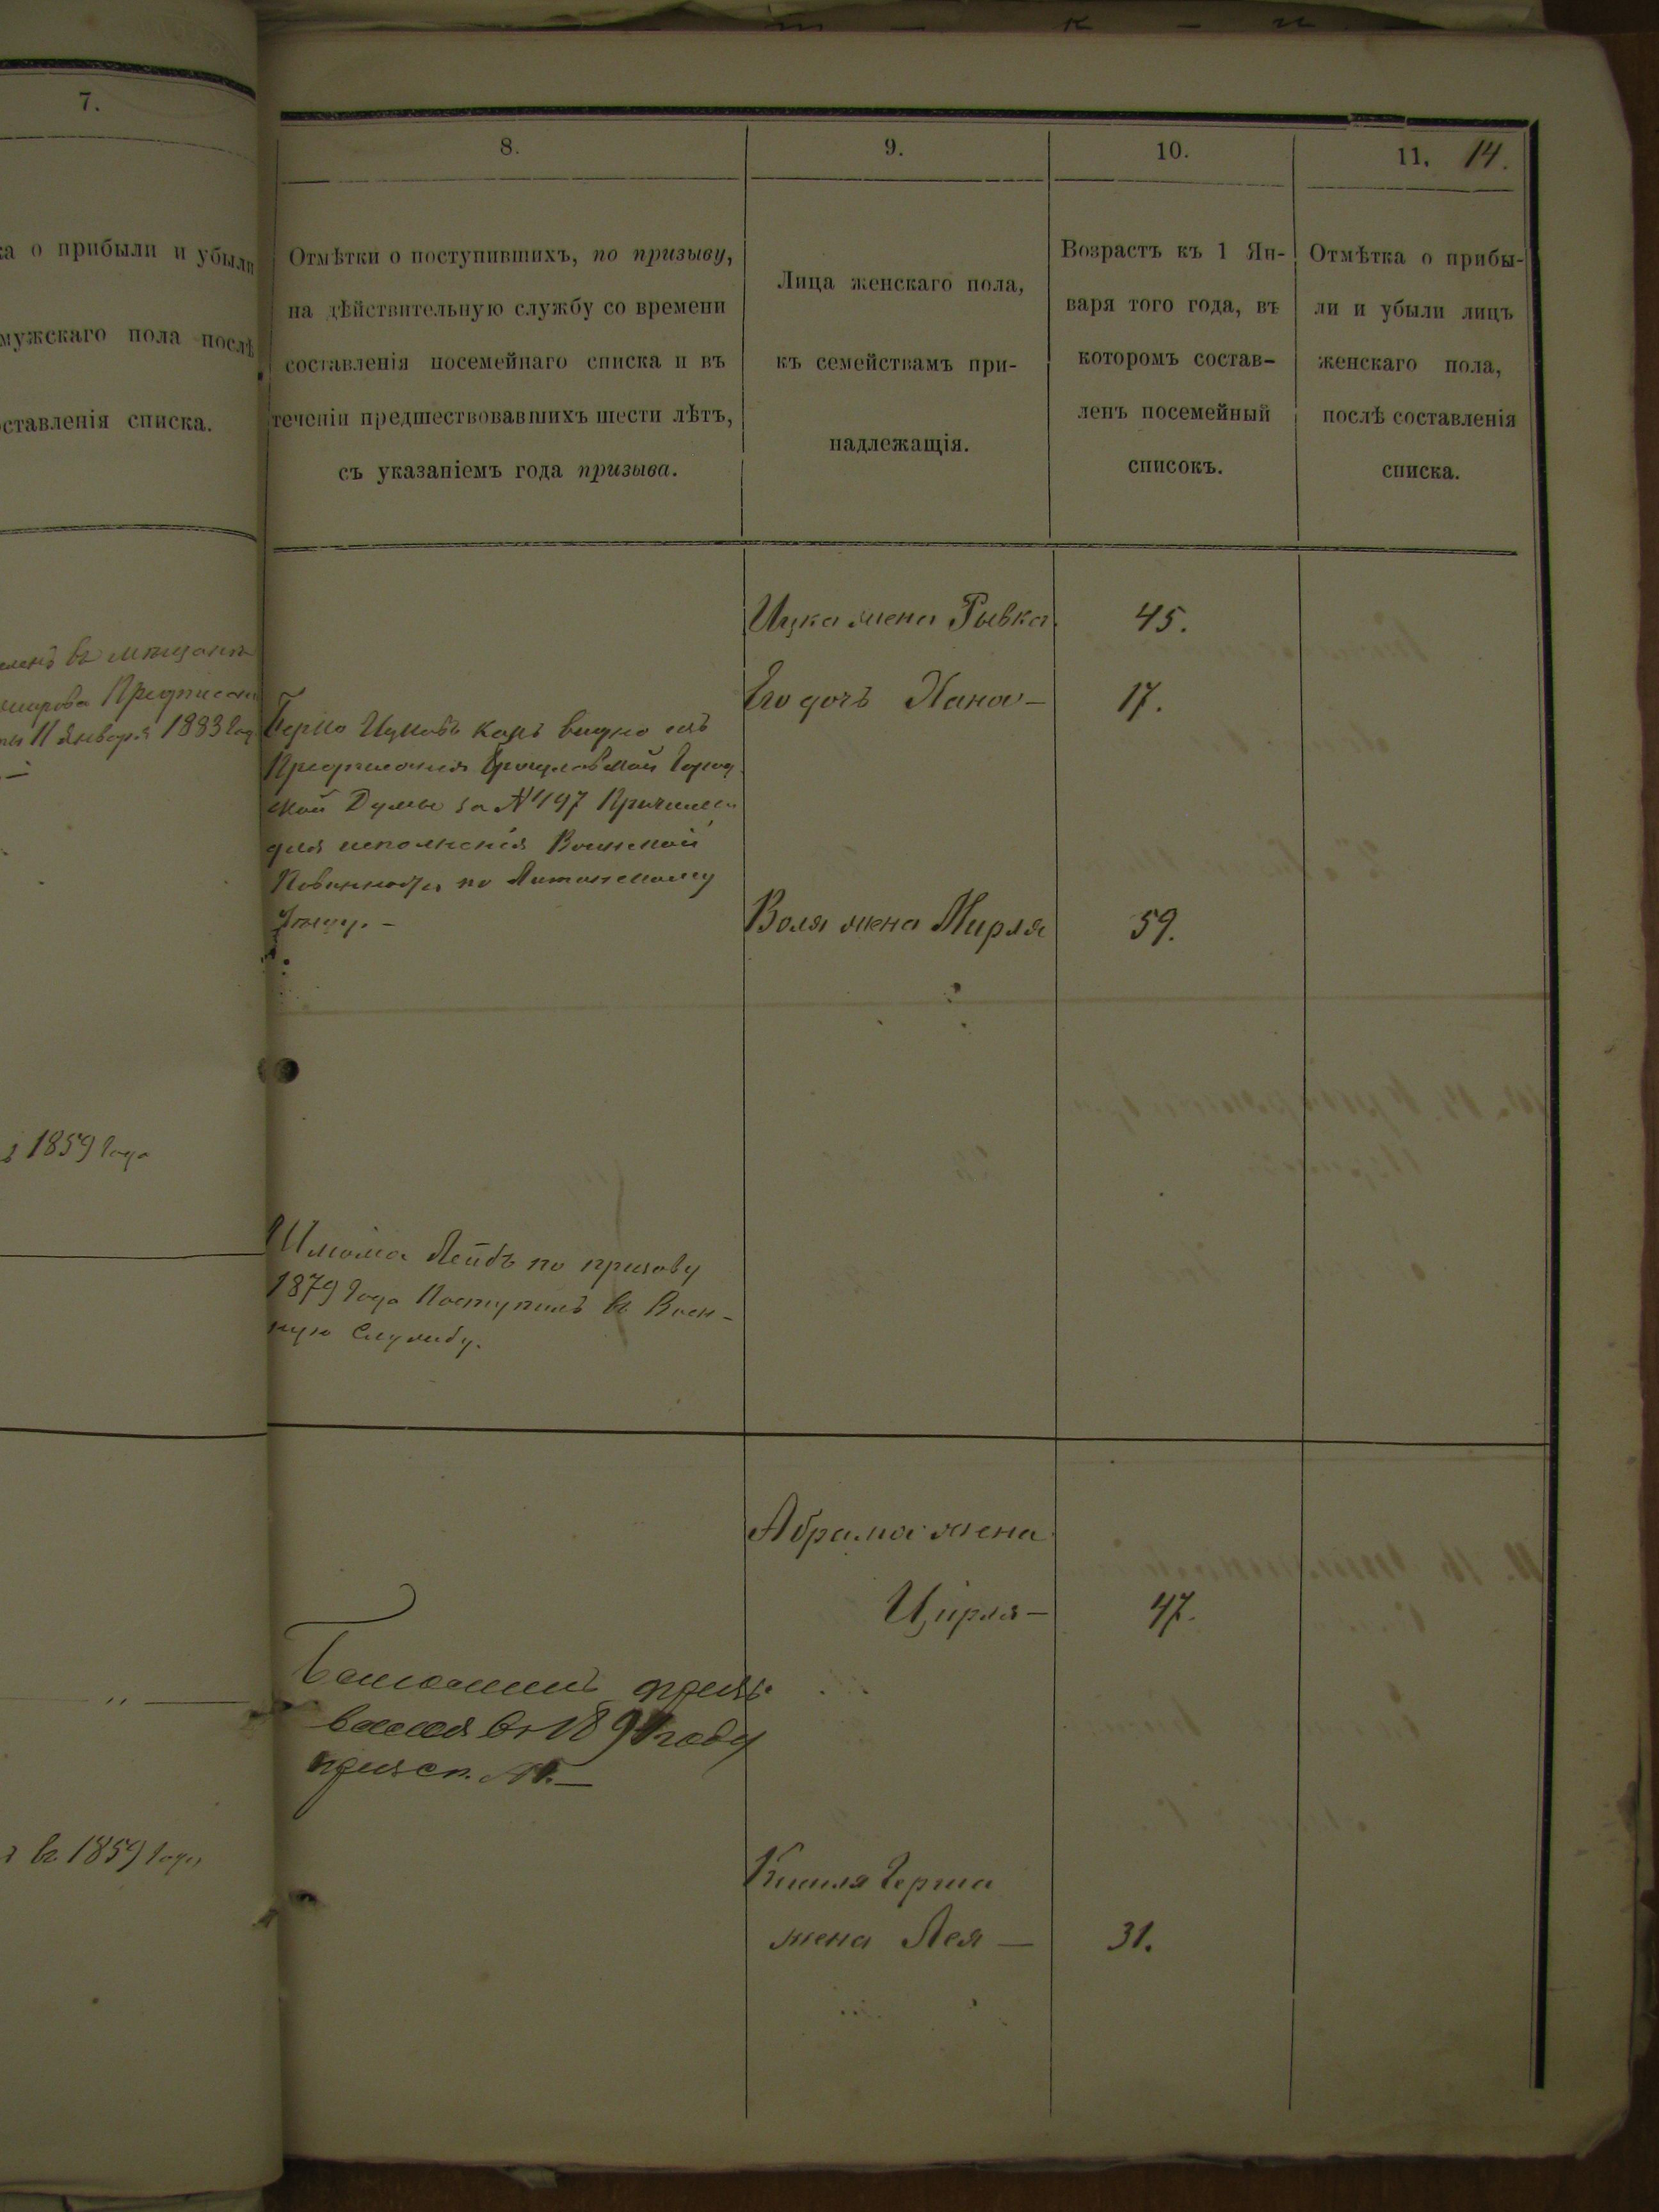 7.
а о прибыли и убыли
мужскаго пола послѣ
оставленія списка.
въ мѣщане
11 Января 1883 год
1859 года
въ 1859 году
8.
Отмѣтки о поступившихъ, по призыву,
на дѣйствительную службу со времени
составленія посемейнаго списка и въ
теченіи предшествовавшихъ шести лѣтъ,
съ указаніемъ года призыва.
Берко Ицковъ какъ видно изъ
Предписанія Брацлавской Город
ской Думы за №497 Причислен
для исполненія Воинской
Повинности по
Шлиома Лейбъ по призову
1879 года Поступилъ въ Воен-
ную Службу.
году
9.
Лица женскаго пола,
къ семействамъ при-
надлежащія.
Ицка жена Рывка
Его дочь Хана –
Воля жена Мирля
Абрама жена
Цирля –
Кисиля Герша
жена Лея –
10.
Возрастъ къ 1 Ян-
варя того года, въ
которомъ состав-
ленъ посемейный
списокъ.
45.
17.
59.
47.
31.
11. 14.
Отмѣтка о прибы-
ли и убыли лицъ
женскаго пола,
послѣ составленія
списка.